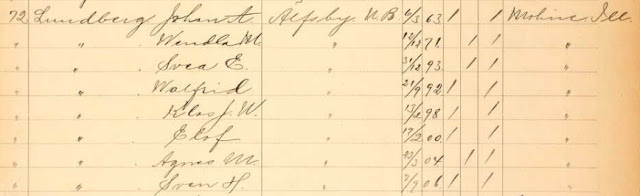 72 Lundberg Johan A. Elfsby N.B 6/3 63 1 1 Moline Ill.
" " Wendla M. " 12/12 71 1 1 "
" " Svea E. " 31/12 93 1 1 "
" " Walfrid " 21/9 92 1 1 "
" " Klas J. W. " 13/2 98 1 1 "
" " Elof " 17/2 00 1 1 "
" " Agnes M. " 04 1 1 "
" " Sven H. " 06 1 1 "